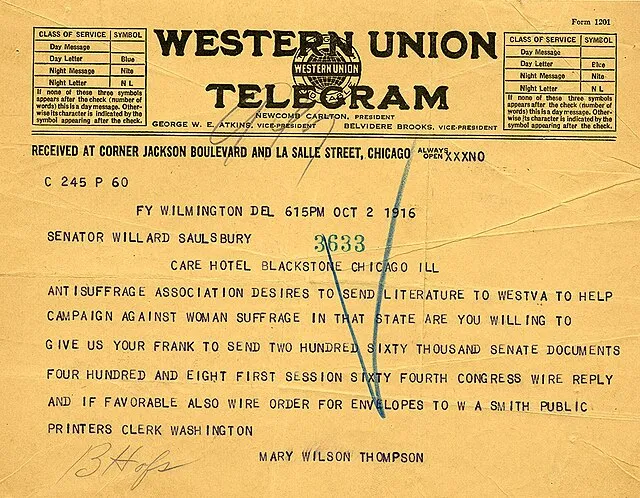 Form 1201
CLASS OF SERVICE SYMBOL
Day Message
Day Letter Blue
Night Message Nite
Night Letter N L
If none of these three symbols
appears after the check (number of
words) this is a day message. Other-
wise its character is indicated by the
symbol appearing after the check.
WESTERN UNION
WESTERN UNION
TELEGRAM
NEWCOMB CARLTON, PRESIDENT
GEORGE W. E. ATKINS, VICE-PRESIDENT BELVIDERE BROOKS, VICE-PRESIDENT
CLASS OF SERVICE SYMBOL
Day Message
Day Letter Blue
Night Message Nite
Night Letter N L
If none of these three symbols
appears after the check (number of
words) this is a day message. Other-
wise its character is indicated by the
symbol appearing after the check.
RECEIVED AT CORNER JACKSON BOULEVARD AND LA SALLE STREET, CHICAGO ALWAYS OPEN XXXNO
C 245 P 60
FY WILMINGTON DEL 615PM OCT 2 1916
SENATOR WILLARD SAULSBURY 3633
CARE HOTEL BLACKSTONE CHICAGO ILL
ANTISUFFRAGE ASSOCIATION DESIRES TO SEND LITERATURE TO WESTVA TO HELP
CAMPAIGN AGAINST WOMAN SUFFRAGE IN THAT STATE ARE YOU WILLING TO
GIVE US YOUR FRANK TO SEND TWO HUNDRED SIXTY THOUSAND SENATE DOCUMENTS
FOUR HUNDRED AND EIGHT FIRST SESSION SIXTY FOURTH CONGRESS WIRE REPLY
AND IF FAVORABLE ALSO WIRE ORDER FOR ENVELOPES TO W A SMITH PUBLIC
PRINTERS CLERK WASHINGTON
MARY WILSON THOMPSON